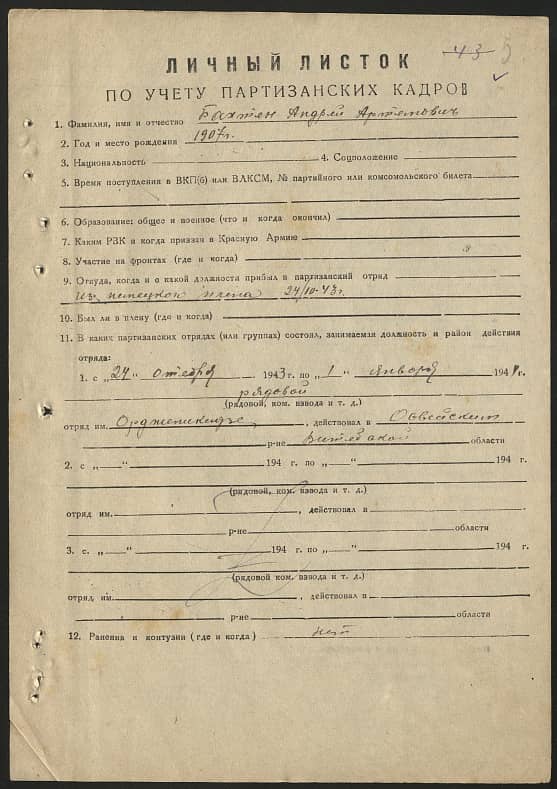 43 5
ЛИЧНЫЙ ЛИСТОК
ПО УЧЕТУ ПАРТИЗАНСКИХ КАДРОВ
1. Фамилия, имя и отчество Бахтен Андрей Артемович
2. Год и место рождения 1907г.
3. Национальность 4. Соцположение
5. Время поступления в ВКП(б) или ВЛКСМ, № партийного или комсомольского билета
6. Образование: общее и военное (что и когда окончил)
7. Каким РВК и когда призван в Красную Армию
8. Участие на фронтах (где и когда)
9. Откуда, когда и с какой должности прибыл в партизанский отряд
Из немецкого плена 24/10-43г.
10. Был ли в плену (где и когда)
11. В каких партизанских отрядах (или группах) состоял, занимаемая должность и район действия
отряда:
1. с „24“ октября 1943г. по „1“ января 1944г.
рядовой
(рядовой, ком. взвода и т. д.)
отряд им. Орджоникидзе, действовал в Освейском
р-не Витебской области
2. с „ “ 194 г. по „ “ 194 г.
(рядовой, ком. взвода и т. д.)
отряд им. , действовал в
р-не области
3. с. „ “ 194 г. по „ “ 194 г.
(рядовой ком. взвода и т. д.)
отряд им. , действовал в
р-не области
12. Ранения и контузии (где и когда) нет